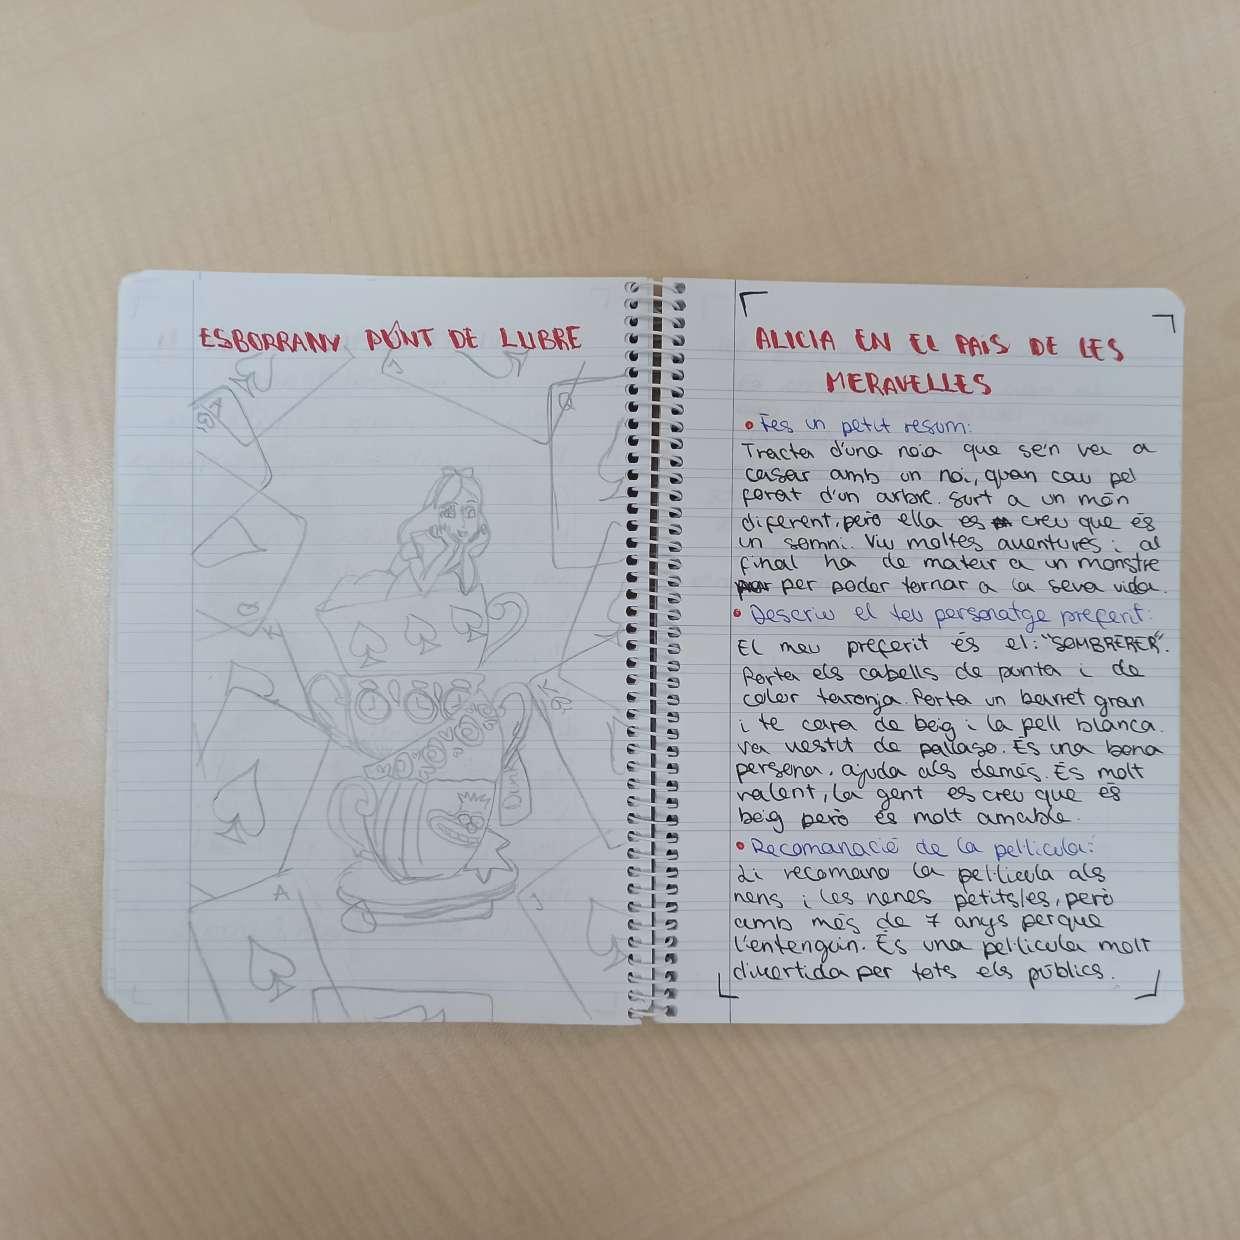 ESBORRANY PUNT DE LLIBRE
ALICIA EN EL PAIS DE LES
MERAVELLES
• Fes un petit resum:
Tracta d'una noia que se'n va a
casar amb un noi, quan cau pel
forat d'un arbre. Surt a un món
diferent, però ella es creu que és
un somni. Viu moltes aventures i al
final ha de matar a un monstre
per poder tornar a la seva vida.
• Descriu el teu personatge preferit:
El meu preferit és el: "SOMBRERER".
Porta els cabells de punta i de
color taronja. Porta un barret gran
i te cara de boig i la pell blanca.
Va vestit de pallaso. És una bona
persona, ajuda als demés. És molt
valent, la gent es creu que és
boig però és molt amable.
• Recomanació de la pel·lícula:
Li recomano la pel·lícula als
nens i les nenes petits/es, però
amb més de 7 anys perque
l'entenguin. És una pel·lícula molt
divertida per tots els públics.